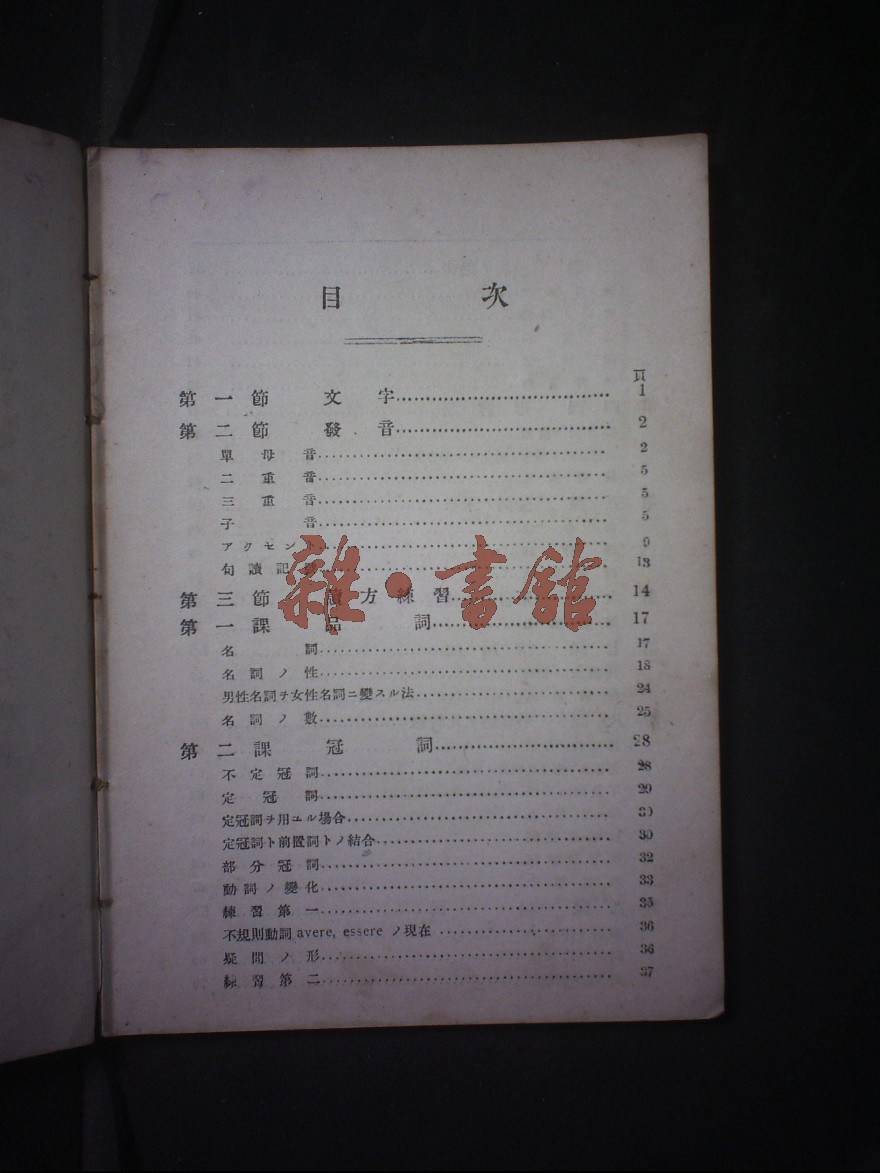 目次
頁
第一節 文字 1
第二節 發音 2
單母音 2
二重音 5
三重音 5
子音 5
アクセント 9
句讀記號 13
第三節 讀方練習 14
第一課 品詞 17
名詞 17
名詞ノ性 18
男性名詞ヲ女性名詞ニ變スル法 24
名詞ノ數 25
第二課 冠詞 28
不定冠詞 28
定冠詞 29
定冠詞ヲ用ユル場合 30
定冠詞ト前置詞トノ結合 30
部分冠詞 32
動詞ノ變化 33
練習第一 35
不規則動詞 avere, essere ノ現在 36
疑問ノ形 36
練習第二 37
雜·書館